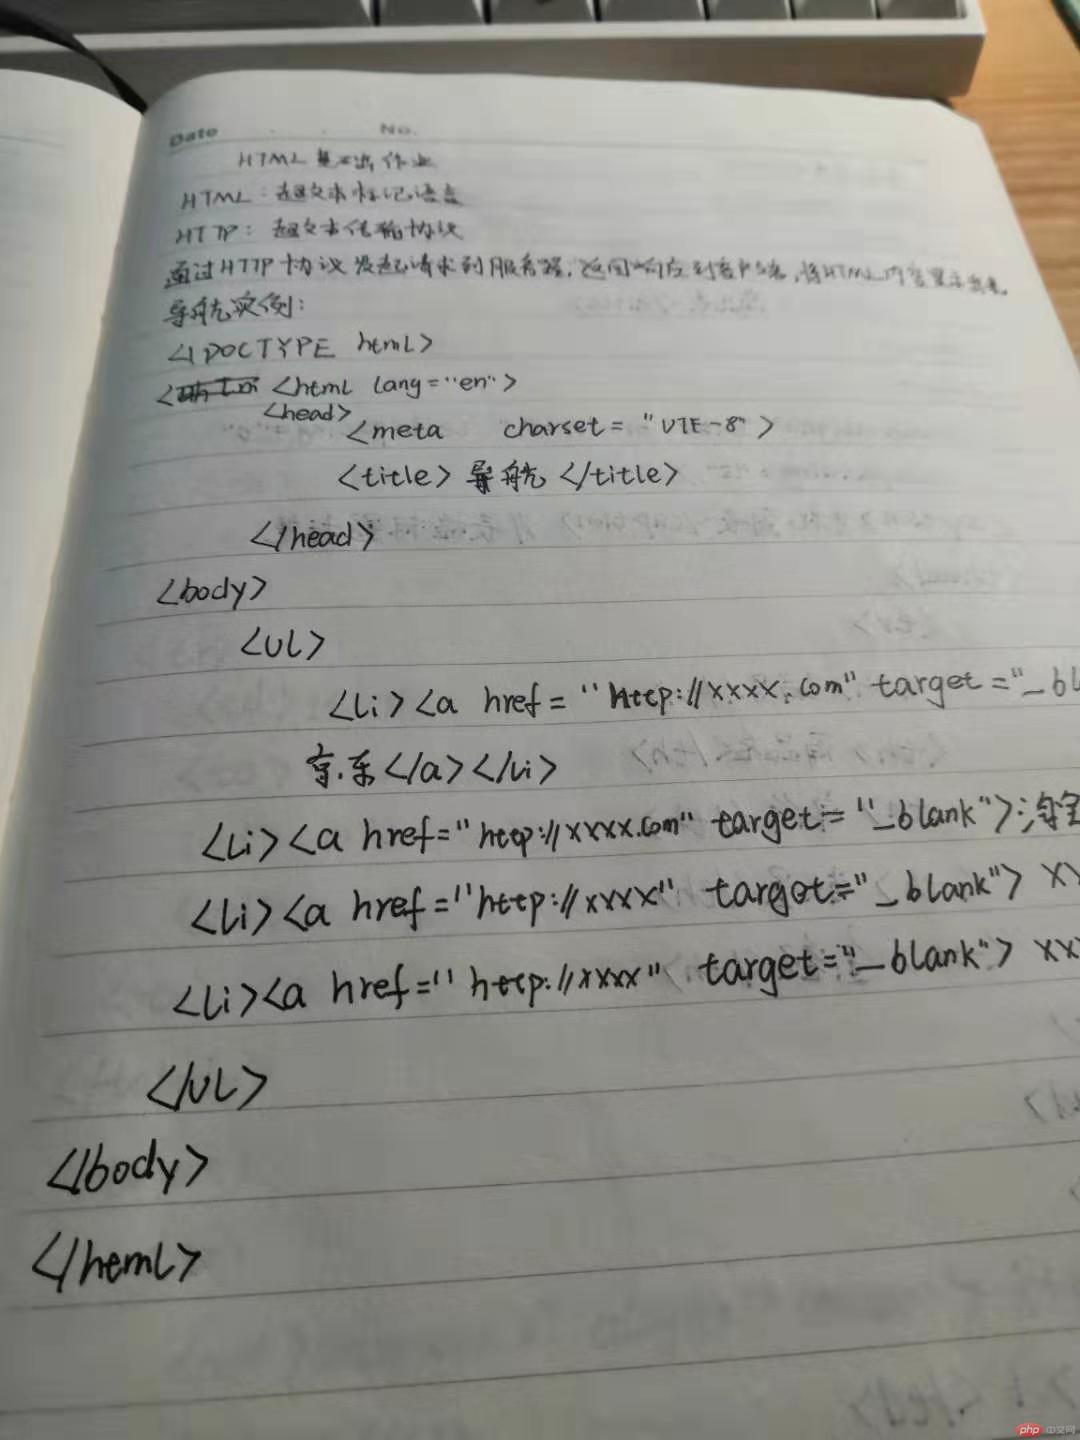 Date No.
HTML 基础作业
HTML：超文本标记语言
HTTP：超文本传输协议
通过HTTP协议发起请求到服务器，返回响应到客户端，将HTML内容显示出来。
导航实例：
<!DOCTYPE html>
< <html lang="en">
<head>
<meta charset="UTF-8">
<title>导航</title>
</head>
<body>
<ul>
<li><a href="http://xxxx.com" target="_bl
京东</a></li>
<li><a href="http://xxxx.com" target="_blank">淘宝
<li><a href="http://xxxx" target="_blank"> xx
<li><a href="http://xxxx" target="_blank"> xx
</ul>
</body>
</html>
php 中文网